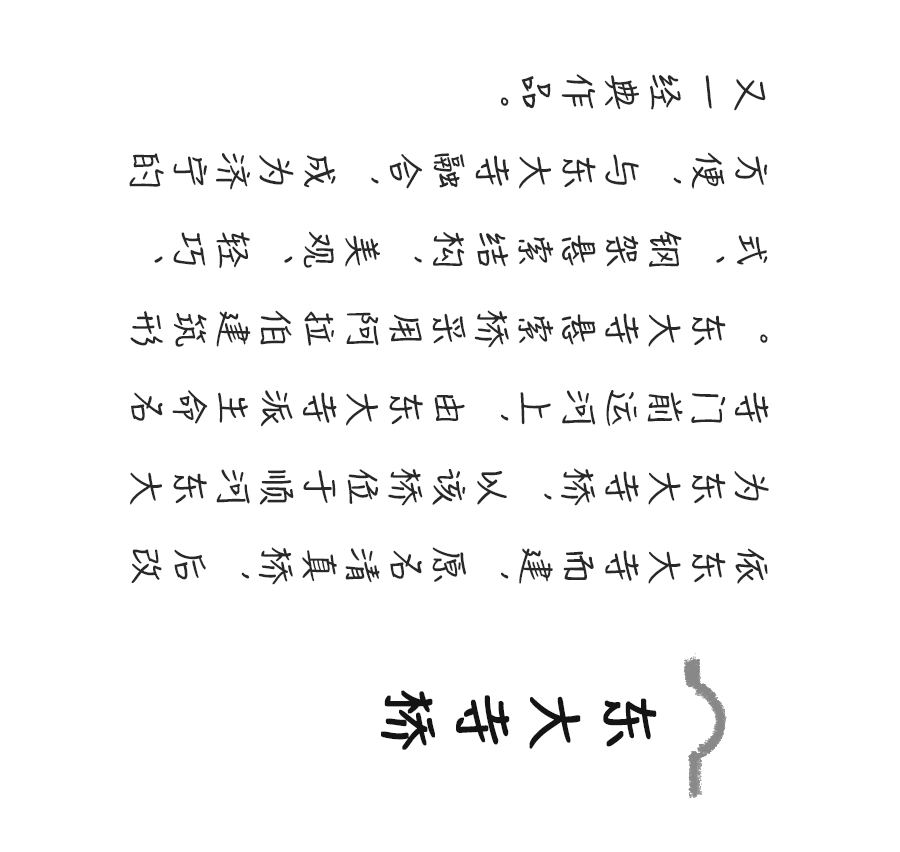 东大寺桥
依东大寺而建，原名清真桥，后改
为东大寺桥，以该桥位于顺河东大
寺门前运河上，由东大寺派生命名
。东大寺悬索桥采用阿拉伯建筑形
式，钢架悬索结构，美观、轻巧、
方便，与东大寺融合，成为济宁的
又一经典作品。